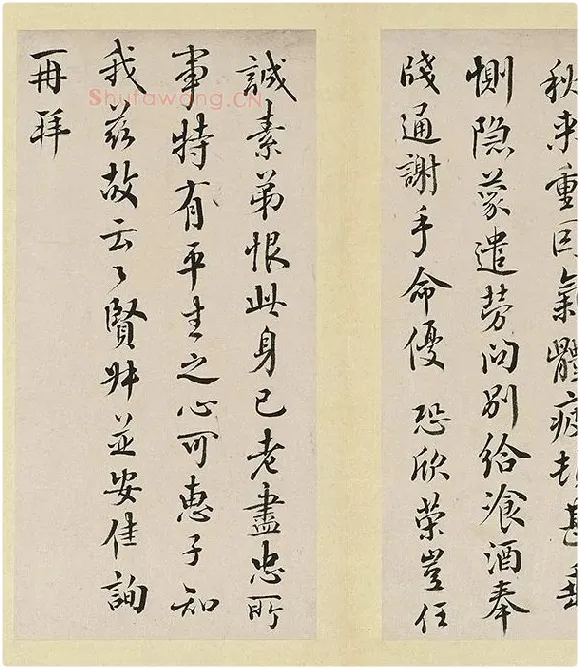 秋来重困氣體疲頓甚垂
惻隐蒙遣勞问别给飡酒奉
牋通謝手命優 恐欣榮豈任
誠素弟恨此身已老盡忠所
事特有平生之心可惠子知
我兹故云々賢姊並安佳詢
再拜
ShufaWang.CN